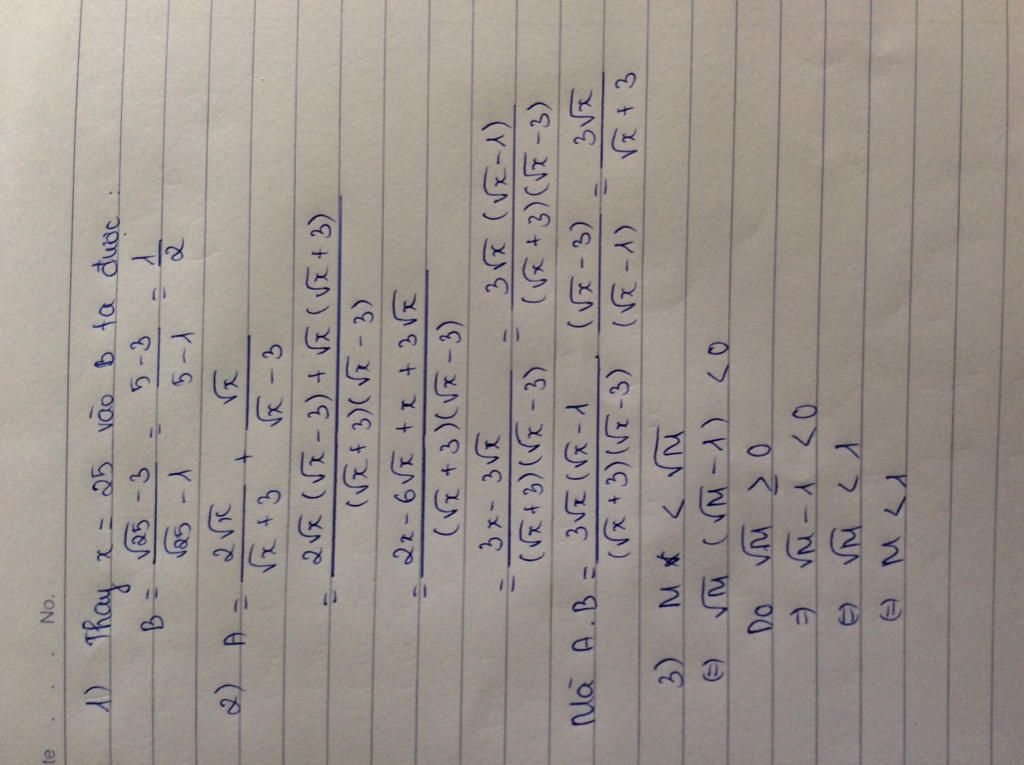 te . . No.
1) Thay x = 25 vào B ta được :
B = (√25 - 3)/(√25 - 1) = (5 - 3)/(5 - 1) = 1/2
2) A = 2√x/(√x + 3) + √x/(√x - 3)
= (2√x (√x - 3) + √x (√x + 3))/((√x + 3)(√x - 3))
= (2x - 6√x + x + 3√x)/((√x + 3)(√x - 3))
= (3x - 3√x)/((√x + 3)(√x - 3)) = (3√x (√x - 1))/((√x + 3)(√x - 3))
Mà A.B = (3√x (√x - 1)/((√x + 3)(√x - 3)) (√x - 3)/(√x - 1) = 3√x/(√x + 3)
3) M < √M
⇔ √M (√M - 1) < 0
Do √M ≥ 0
⇒ √M - 1 < 0
⇔ √M < 1
⇔ M < 1